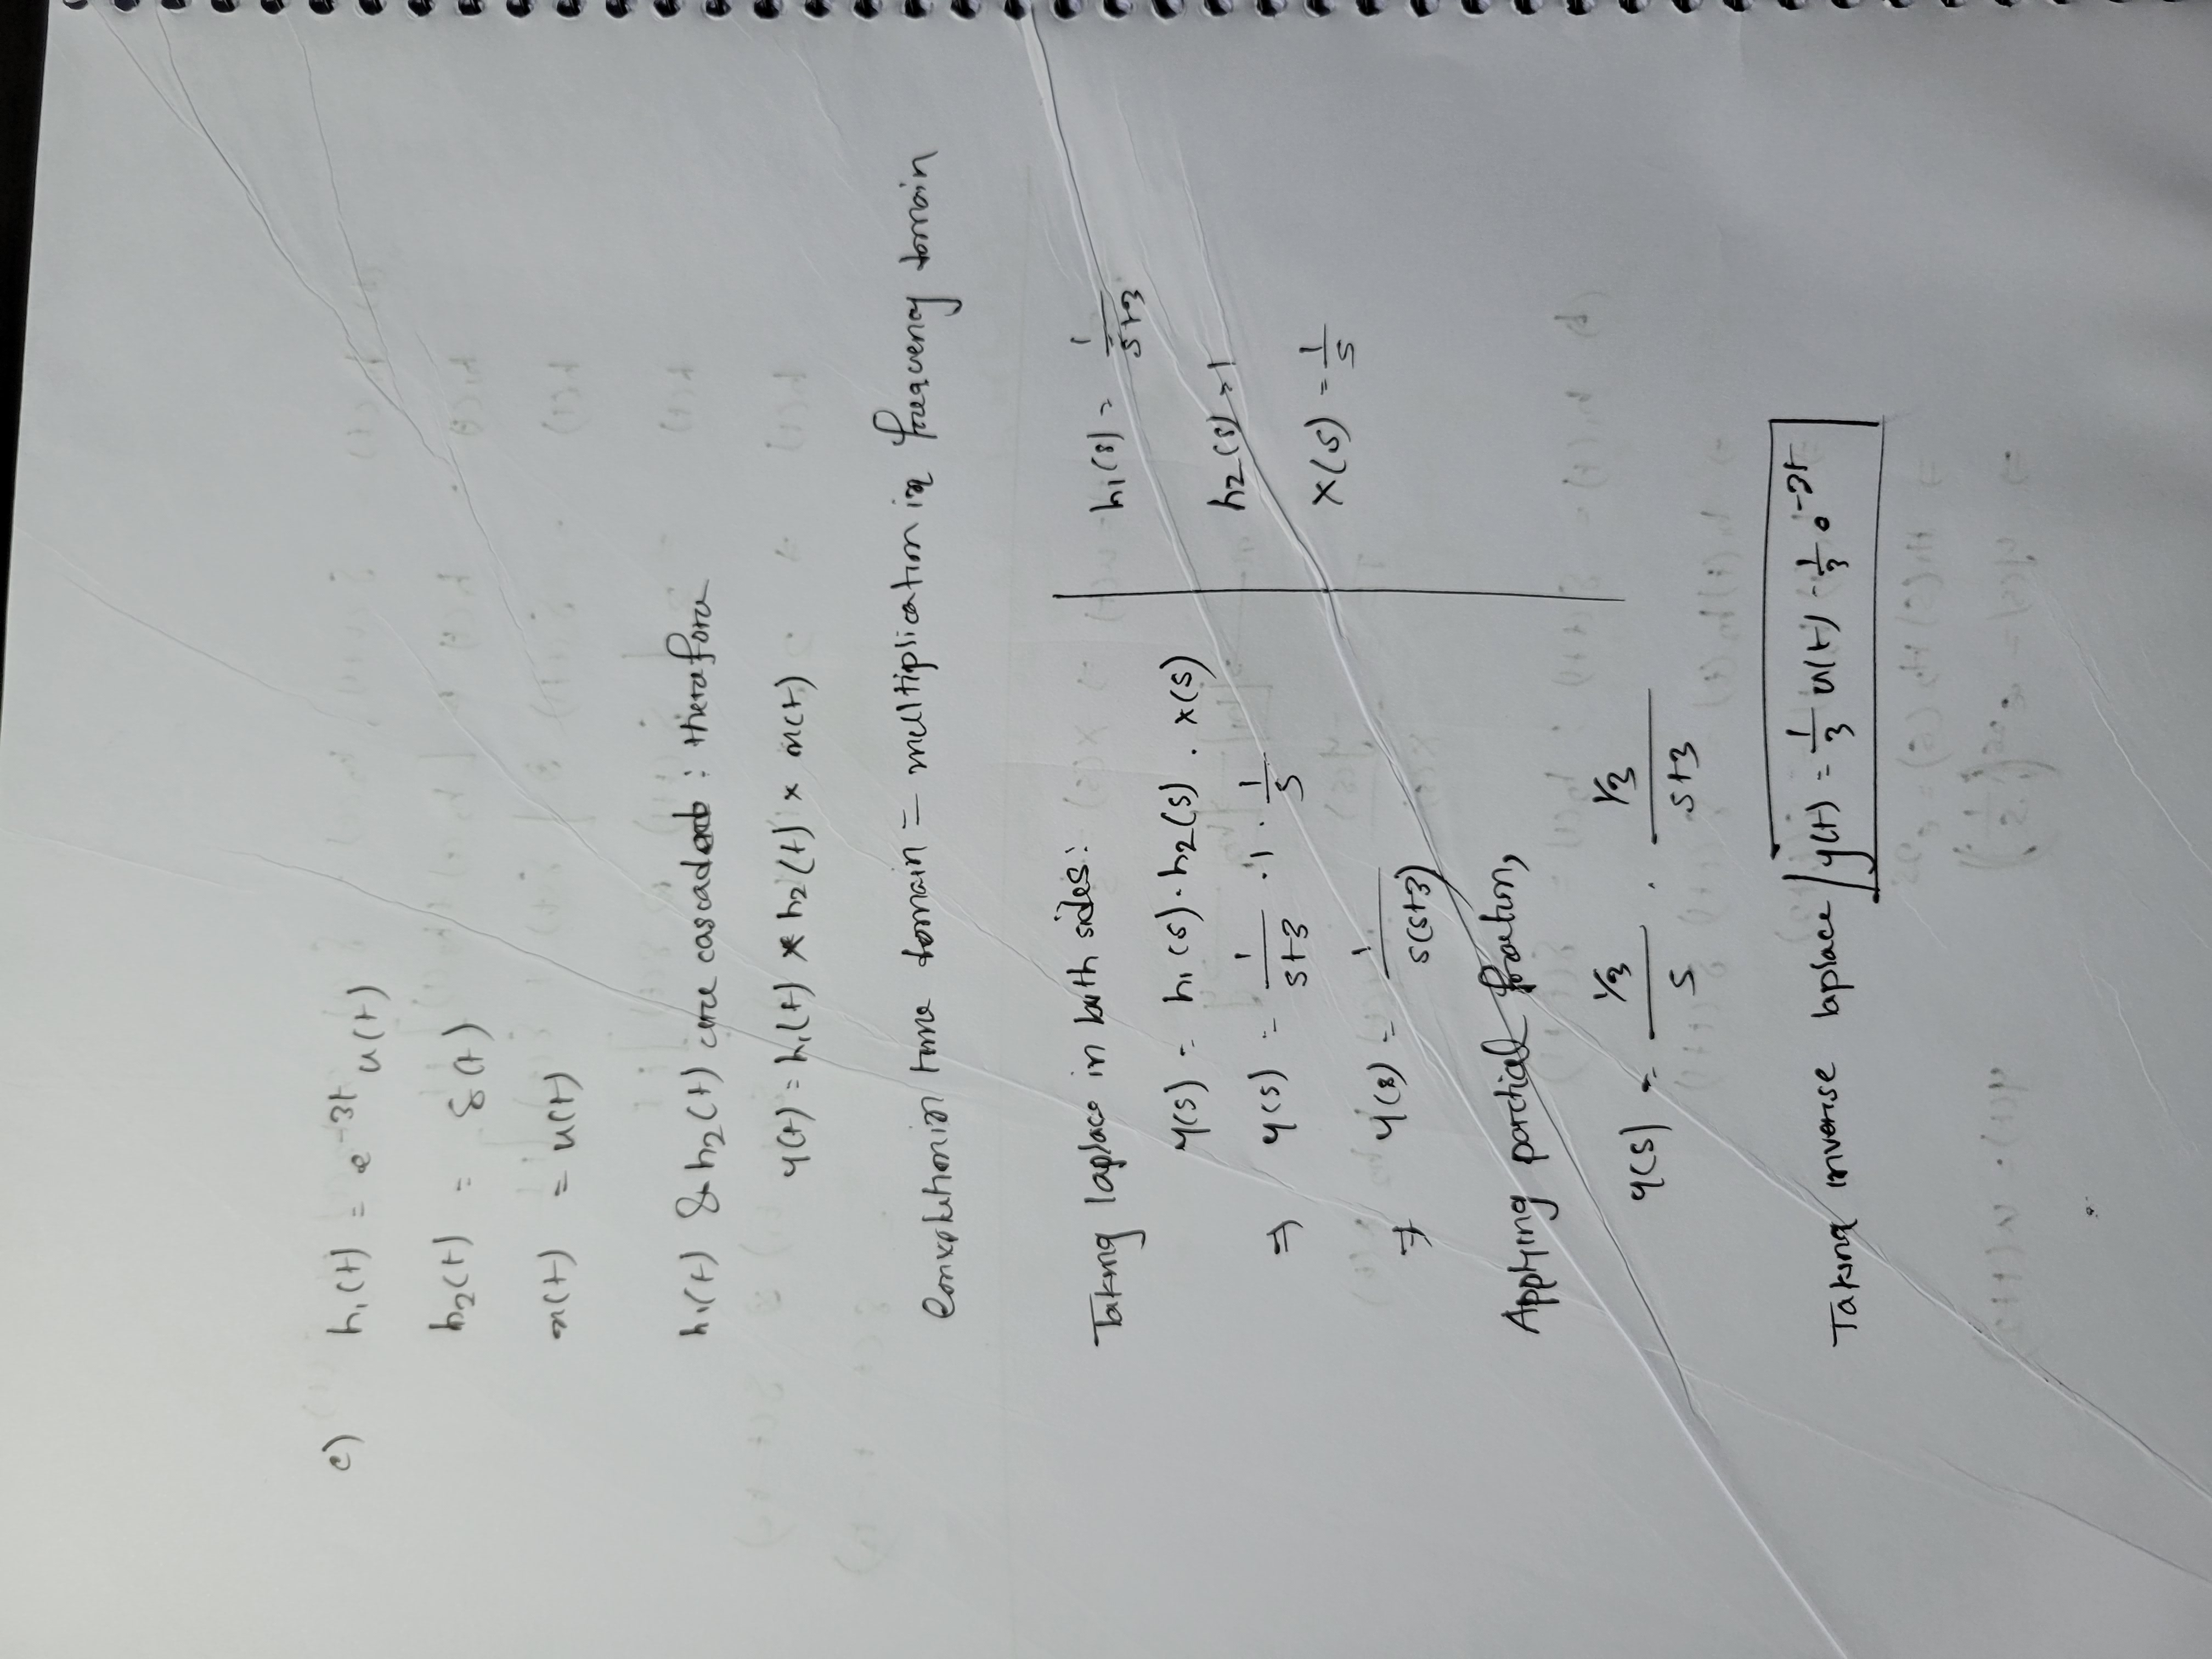 c) h₁(t) = e^-3t u(t)
h₂(t) = δ(t)
x(t) = u(t)
h₁(t) & h₂(t) are cascaded : therefore
y(t) = h₁(t) * h₂(t) * x(t)
Convolution in time domain = multiplication in frequency domain
Taking laplace in both sides:
y(s) = h₁(s) . h₂(s) . x(s)
⇒ y(s) = 1/(s+3) . 1 . 1/s
⇒ y(s) = 1/(s(s+3))
h₁(s) = 1/(s+3)
h₂(s) = 1
x(s) = 1/s
Applying partial fraction,
y(s) = (1/3)/s . (1/3)/(s+3)
Taking inverse laplace y(t) = 1/3 u(t) - 1/3 e^-3t